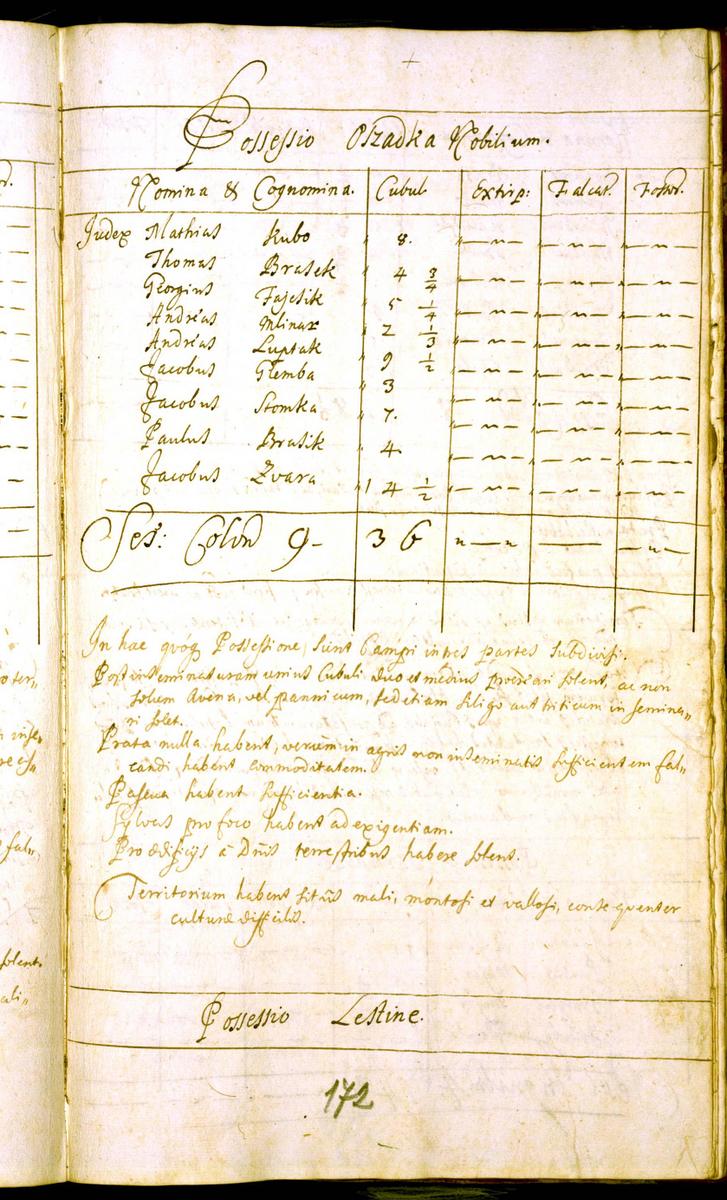 Possessio Oszadka Nobilium.
Nomina & Cognomina. Cubul Extirp: Falcat. Foenor.
Judex Mathias Kubo " 8. "—"— —"— —"—
Thomas Brasek 4 3/4 "—"— —"— —"—
Georgius Fajcsik " 5 1/4 "—"— —"— —"—
Andreas Mlinar " 2 1/3 "—"— —"— —"—
Andreas Luptak " 9 1/2 "—"— —"— —"—
Jacobus Glemba " 3 "—"— —"— —"—
Jacobus Stomka " 7. "—"— —"— —"—
Paulus Brasik " 4. "—"— —"— —"—
Jacobus Zvara " 4 1/2 "—"— —"— —"—
Ses: Colon 9- 36 "—" — —"—
In hac quoq Possessione, sunt Campi in tres partes subdivisi.
Post inseminaturam unius Cubuli duo et medius procreari solent, ac non
solum Avena, vel pannicum, sed etiam siligo aut triticum in semina„
ri solet.
Prata nulla habent, verum in agris non inseminatis sufficientem fal„
candi, habent commoditatem.
Pascua habent sufficientia.
Sylvas pro foco habent ad exigentiam.
Pro ædificijs a Dnis terrestribus habere solent.
Territorium habent sitûs mali, montosi et vallosi, consequenter
culturæ difficilis.
Possessio Lestine.
172